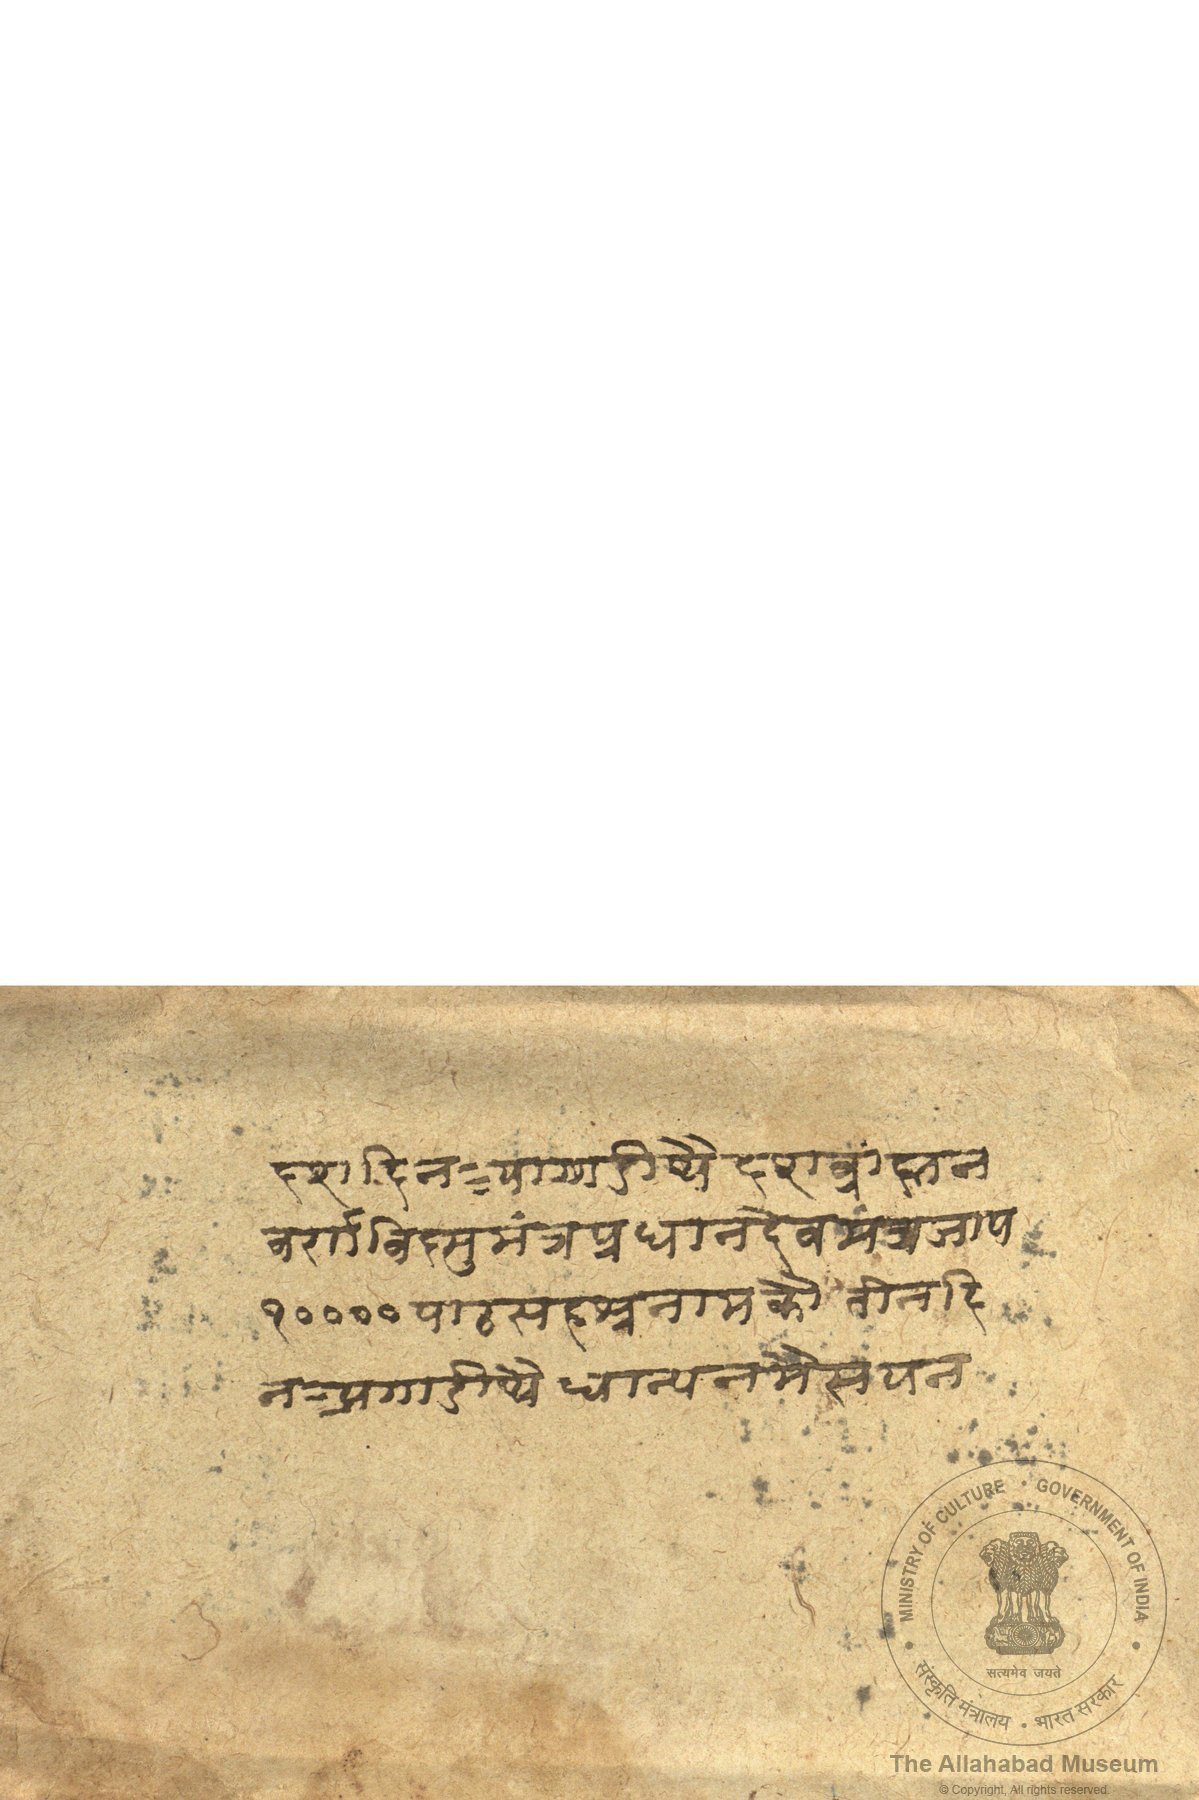 दशादिन=यागाडीष्यै दशब्रांह्मन
वर्णाविदसुमंत्रप्रधानदेवमंत्रजाप
१०००० पाठसहश्रनामकौ तीनदि
न=प्रगाडीष्यै धान्यनमैस्वयन
MINISTRY OF CULTURE • GOVERNMENT OF INDIA
सत्यमेव जयते
संस्कृति मंत्रालय • भारत सरकार
The Allahabad Museum
© Copyright, All rights reserved.